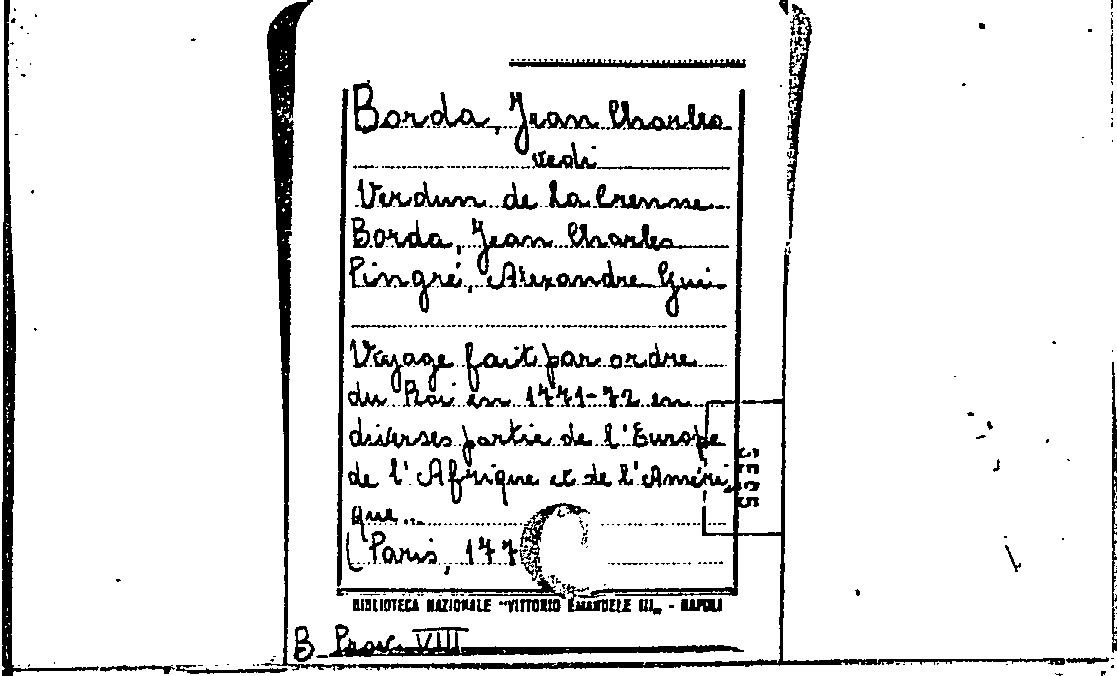 Borda, Jean Charles
vedi
Verdun de La Crenne
Borda, Jean Charles
Pingré, Alexandre Gui-
Voyage fait par ordre
du Roi en 1771-72 en
diverses partie de l'Europe
de l'Afrique et de l'Améri
que...
(Paris, 177
BIBLIOTECA NAZIONALE "VITTORIO EMANUELE III„ - NAPOLI
B. Prov. VIII